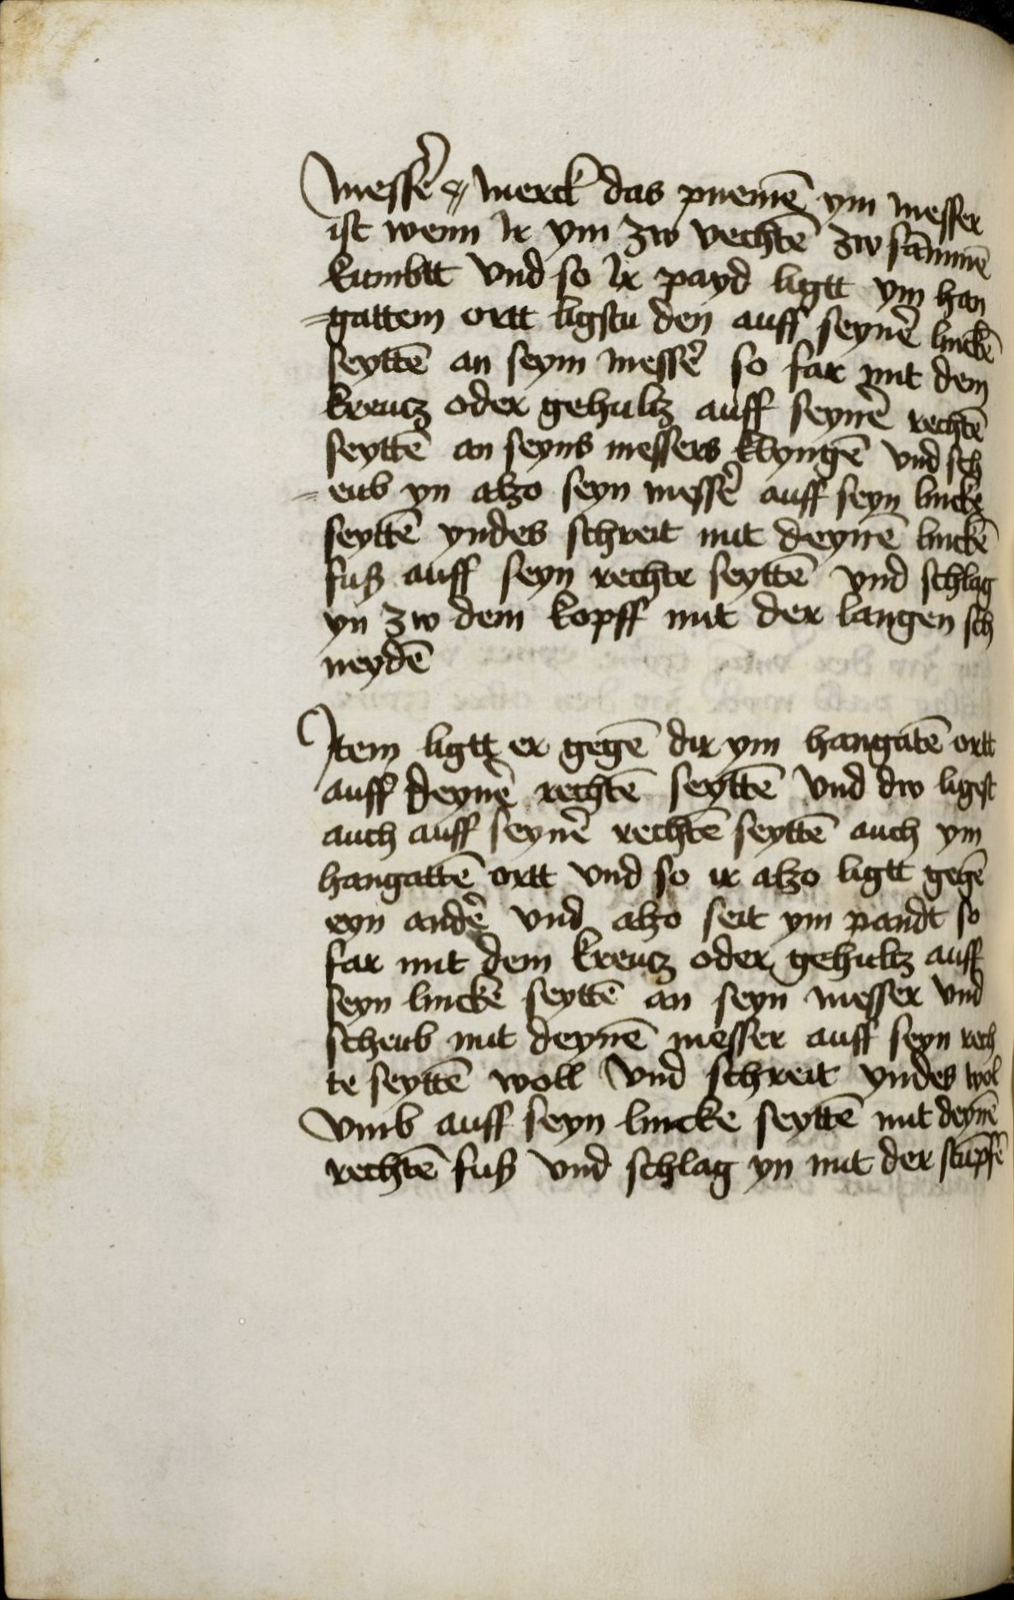 messer̄ // merck das pnemē ym messer
ist wenn Ir ym zw vechtē zw sāmmē
kumbtt vnd so Ir payd ligtt ym han
=gattem ortt ligstu den auff seyner̄ linckē
seyttē an seym messer̄ so far mit dem
kreutz oder gehultz auff seynē rechtē
seyttē an seyns messers klyngē vnd sch
=eub yn also seyn messer̄ auff seyn lincke
seyttē yndes schreit mit deynē linckē
fuß auff seyn rechte seyttē vnd schlag
yn zw dem kopff mit der langen sch
neydē
Item ligtt er gegē dir ym hangatē ortt
auff deyner̄ rechtē seyttē vnd dw ligst
auch auff seyner̄ rechtē seyttē auch ym
hangattē ortt vnd so ir also ligtt gegē
eyn ander̄ vnd also seit ym pandt so
far mit dem kreutz oder gehultz auff
seyn linckē seyttē an seyn messer vnd
scheub mit deynē messer auff seyn rech
te seyttē woll vnd schreit yndes wol
vmb auff seyn lincke seyttē mit deynē
rechtē fuß vnd schlag yn mit der stūpfē